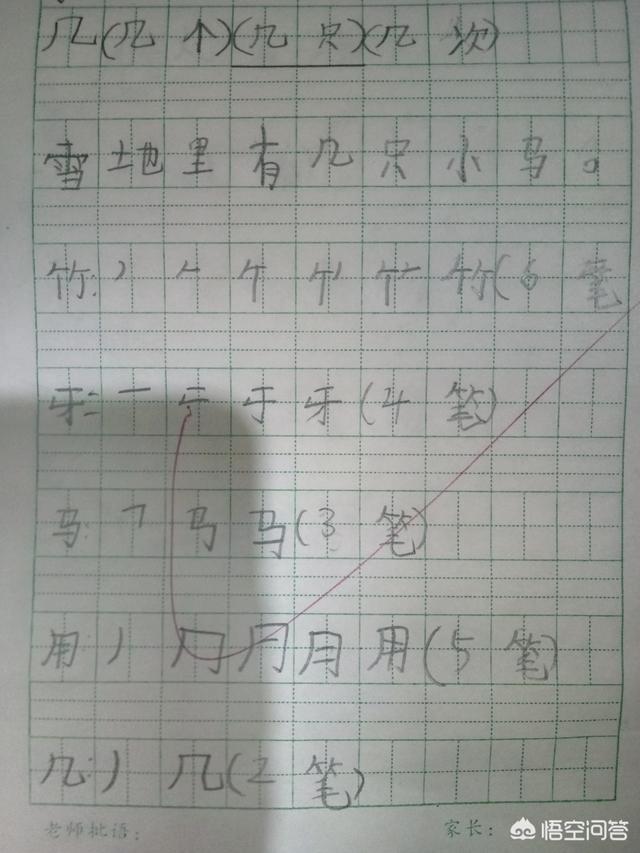 几(几个)(几只)(几次)
雪地里有几只小马。
竹:丿 𠂉 ケ 竹(6笔
牙:一 二 于 牙(4笔)
马:㇕ 马 马(3笔)
用:丿 冂 月 月 用(5笔)
几:丿 几(2笔)
老师批语: 家长:
悟空问答